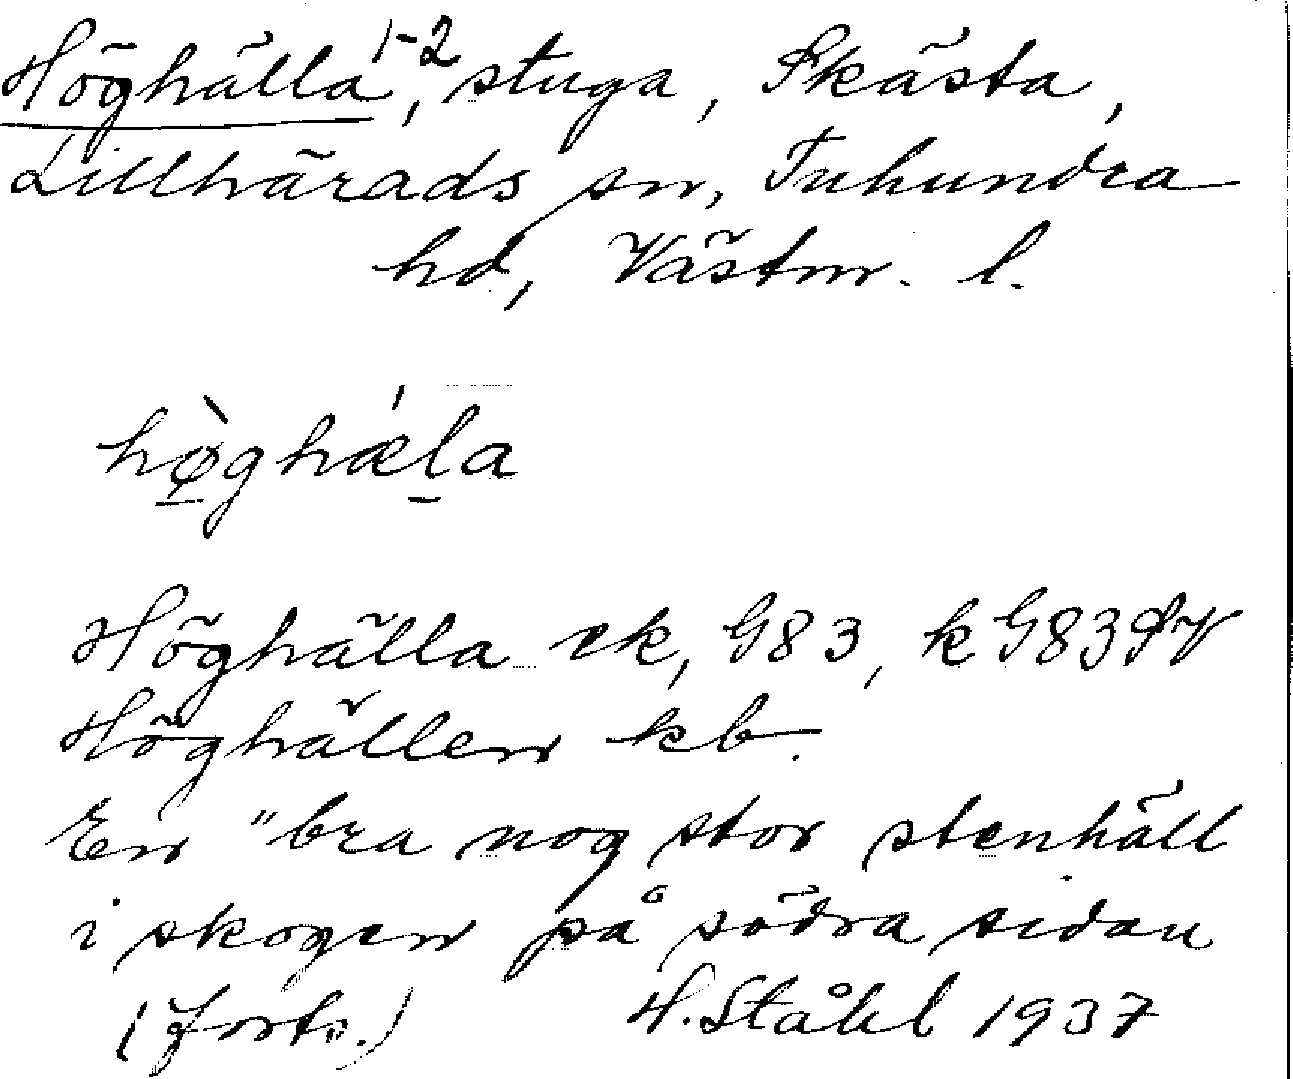 Höghälla 1-2, stuga, Skästa,
Lillhärads sn, Tuhundra
hd, Västm. l.
hø̀ghǽla
Höghälla ek, G83, k G83SV
Höghällen kb.
En "bra nog stor stenhäll
i skogen på södra sidan
(forts.) H. Ståhl 1937